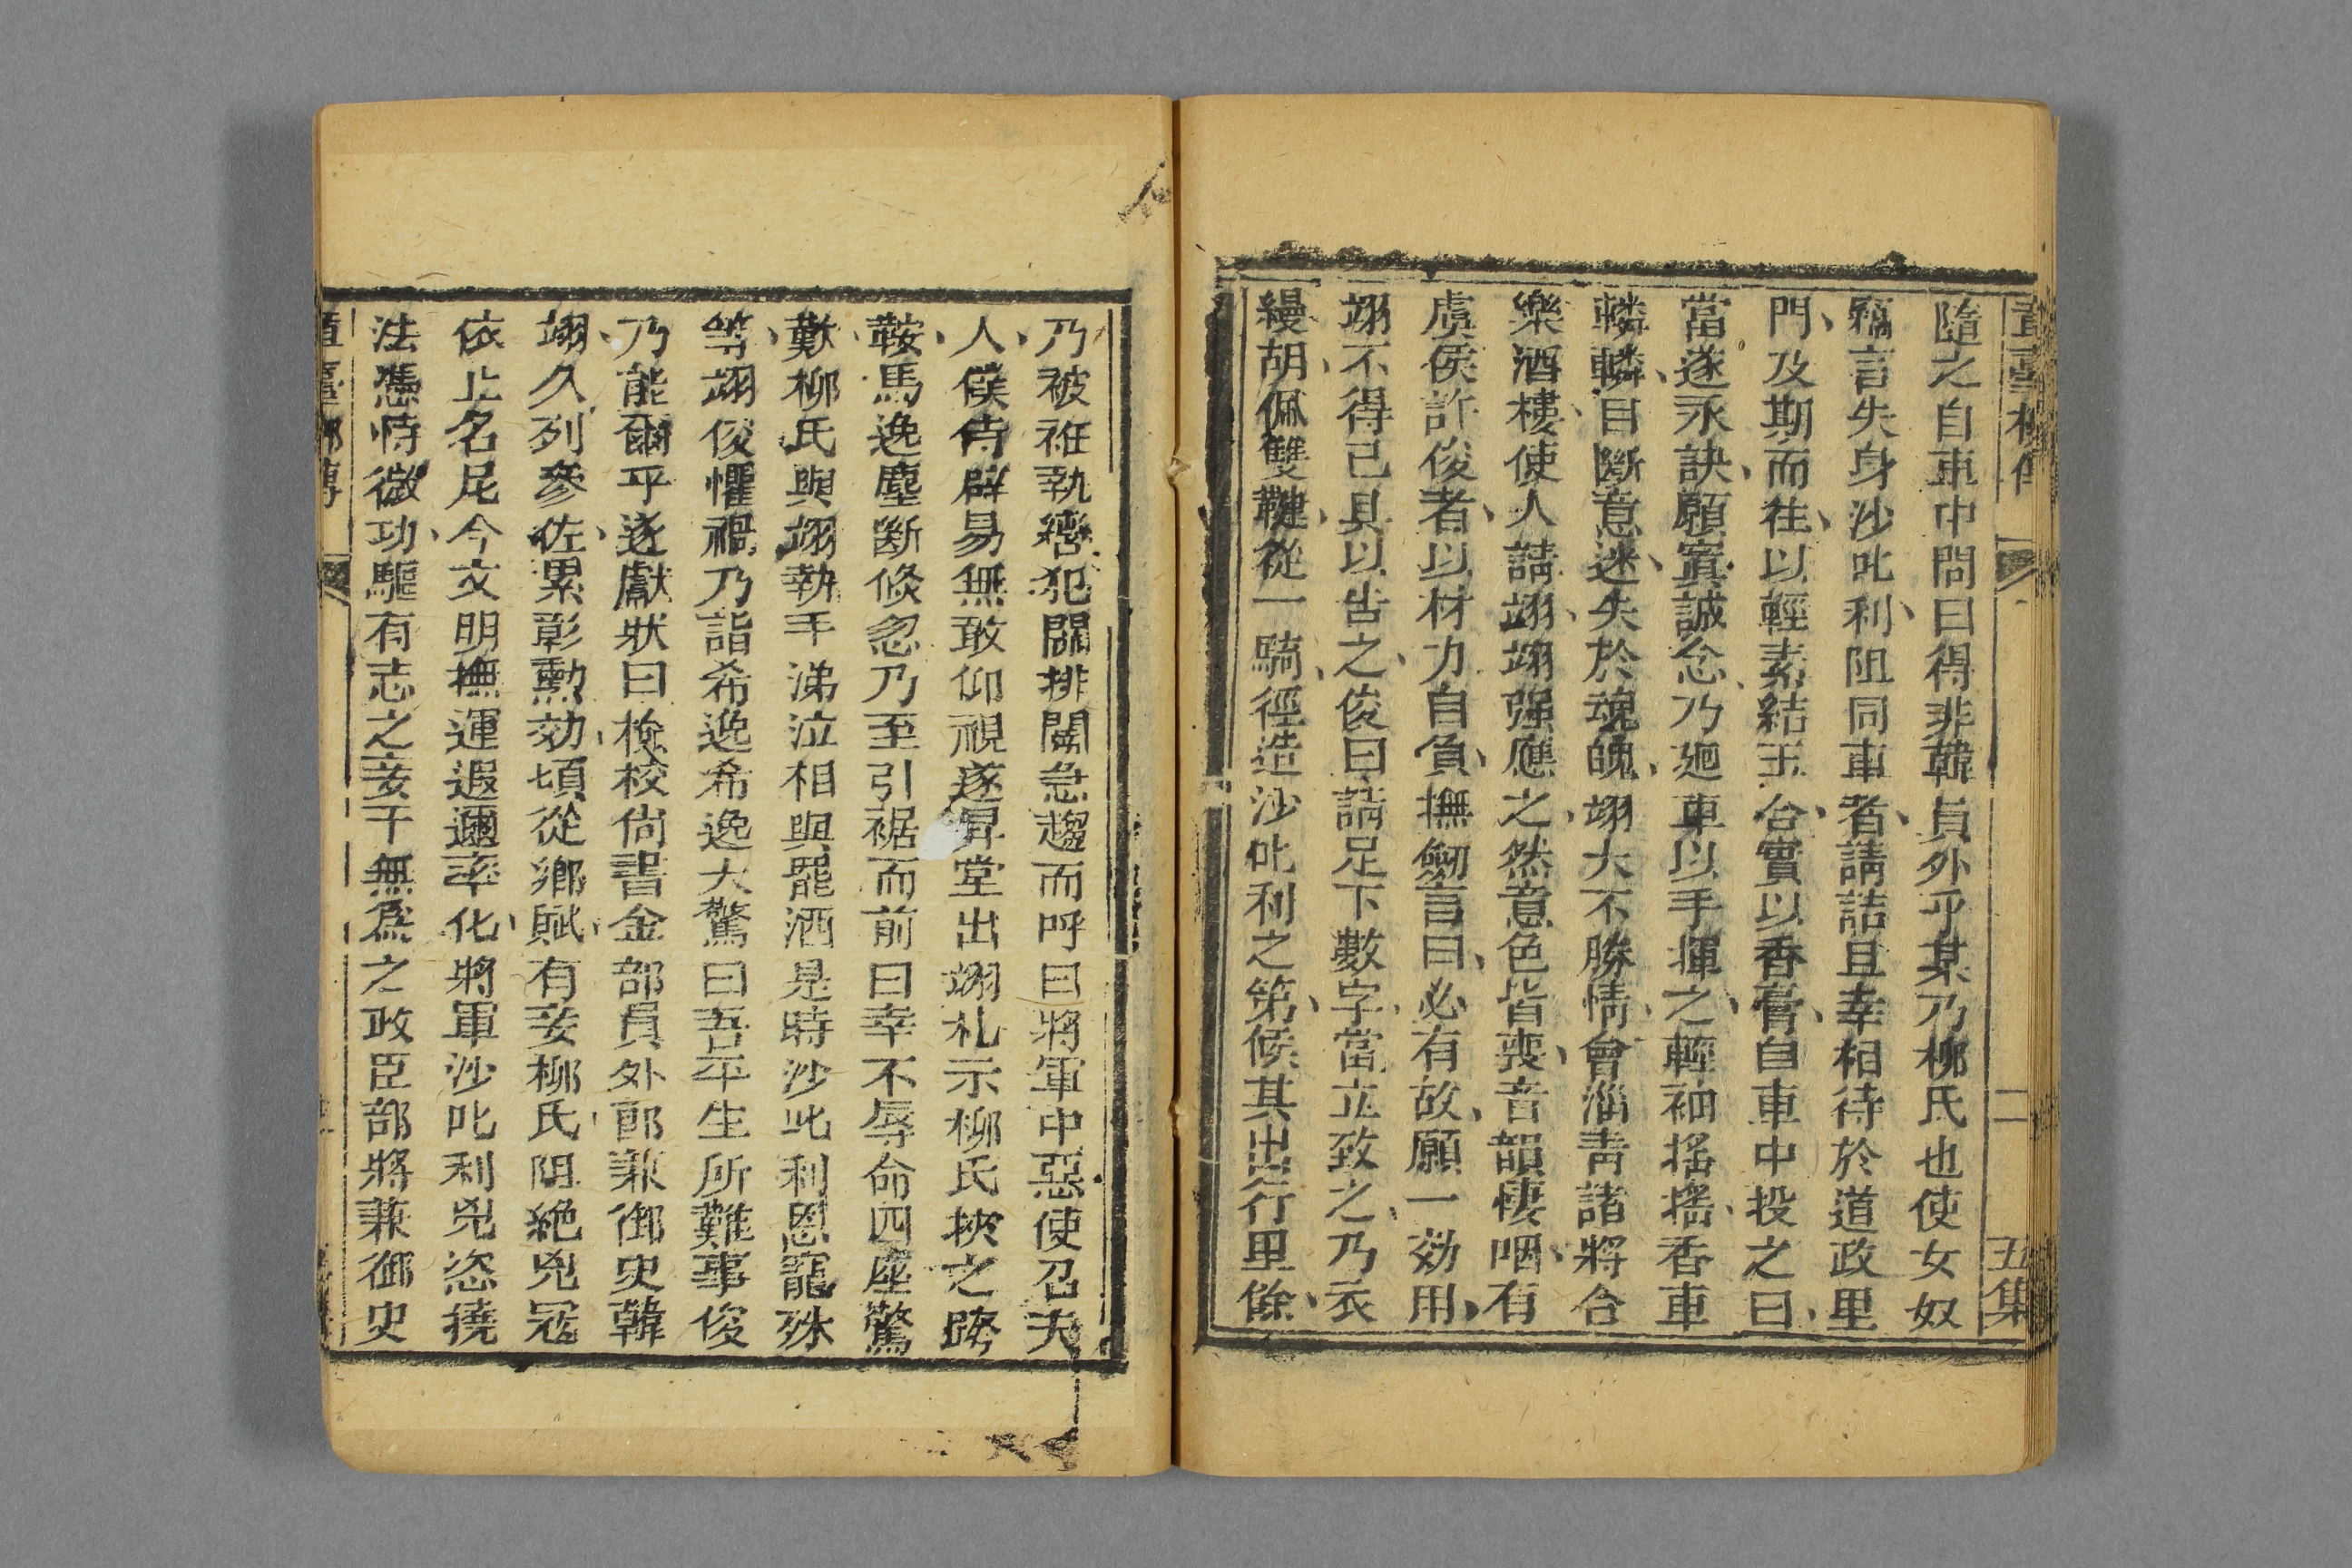 章臺柳傳 二 五集
隨之自車中問曰得非韓員外乎某乃柳氏也使女奴
竊言失身沙叱利阻同車者請詰旦幸相待於道政里
門及期而往以輕素結玉合實以香膏自車中投之曰
當遂永訣願寘誠念乃廻車以手揮之輕袖搖搖香車
轔轔目斷意迷失於魂魄翊大不勝情會淄靑諸將合
樂酒樓使人請翊翊强應之然意色皆喪音韻悽咽有
虞侯許俊者以材力自負撫劒言曰必有故願一効用
翊不得已具以告之俊曰請足下數字當立致之乃衣
縵胡佩雙鞬從一騎徑造沙叱利之第候其出行里餘
乃被袵執轡犯關排闥急趨而呼曰將軍中惡使召夫
人僕侍辟易無敢仰視遂昇堂出翊札示柳氏挾之跨
鞍馬逸塵斷倏忽乃至引裾而前曰幸不辱命四座驚
歎柳氏與翊執手涕泣相與罷酒是時沙叱利恩寵殊
等翊俊懼禍乃詣希逸希逸大驚曰吾平生所難事俊
乃能爾乎遂獻狀曰檢校尙書金部員外郎兼御史韓
翊久列參佐累彰勲効頃從鄉賦有妾柳氏阻絕兇冦
依止名尼今文明撫運遐邇率化將軍沙叱利兇恣撓
法憑恃微功驅有志之妾干無爲之政臣部將兼御史
章臺柳傳